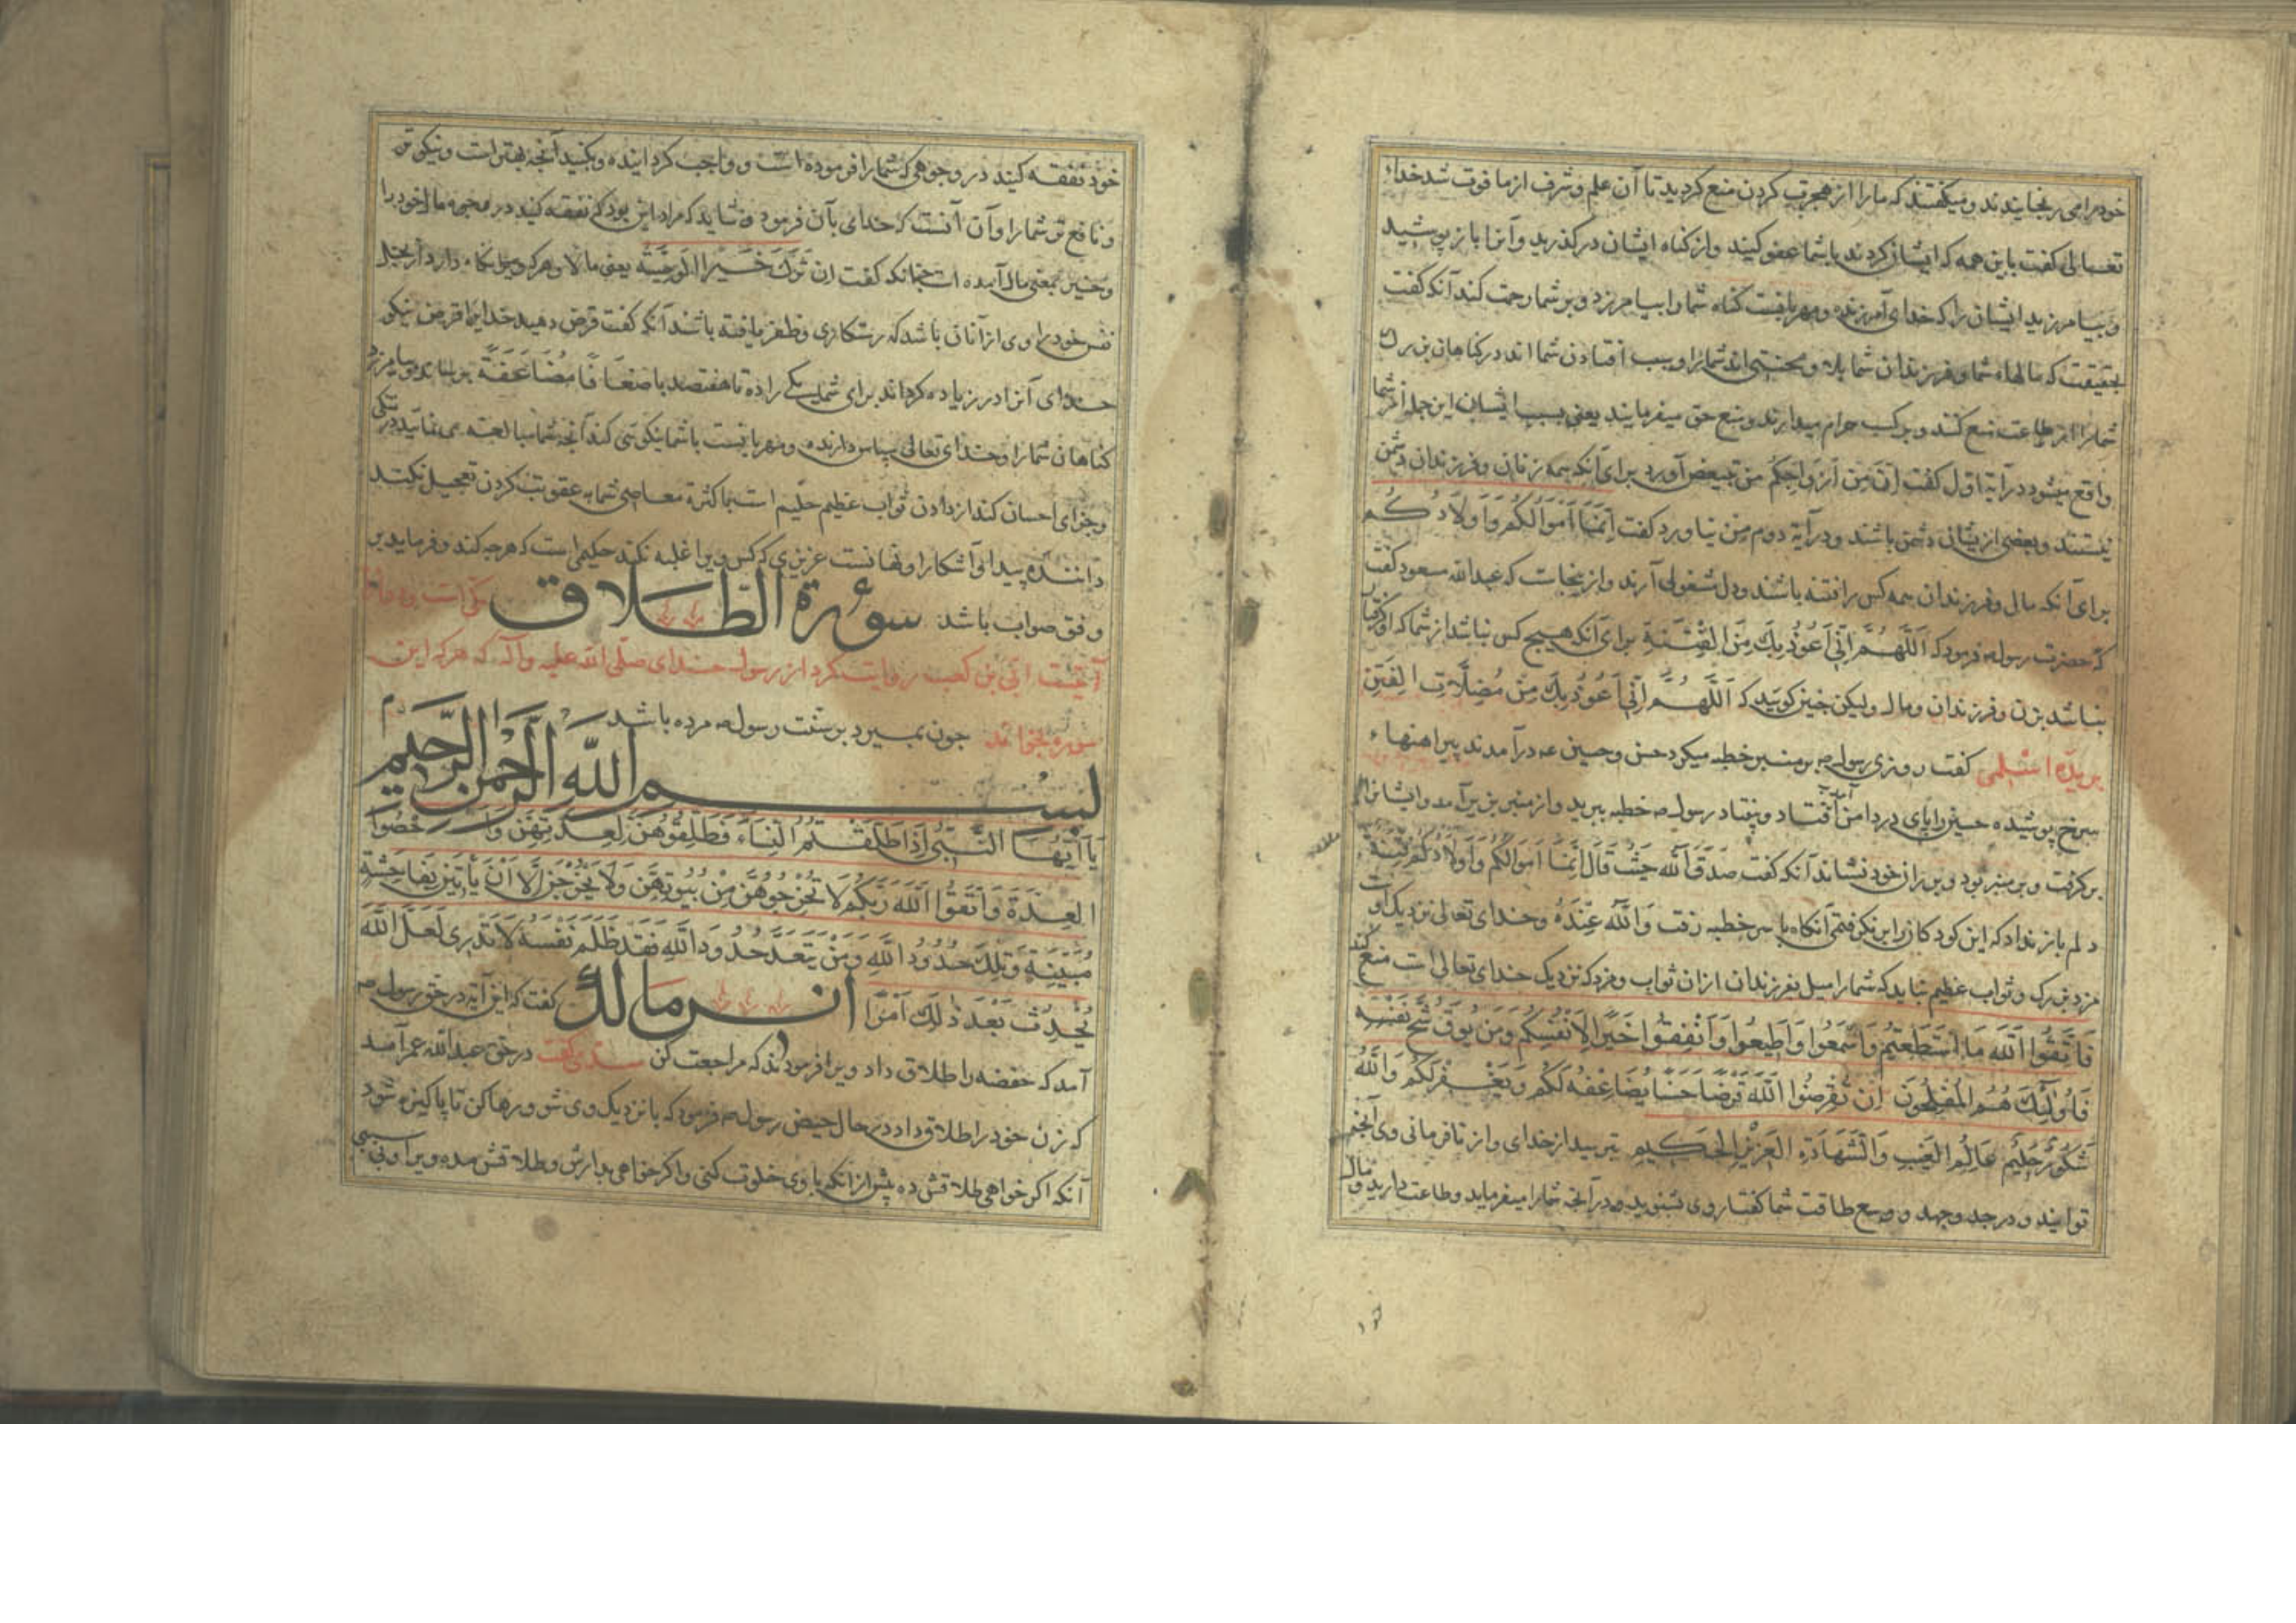 خودرا می رنجایندند و میکفتند که ما را از هجرت کردن منع کردید تا آن علم و شرف از ما فوت شد خدای
تعالی کفت باین همه که ایشان کردند باشما عفو کنید و از کناه ایشان درکذرید و آنرا باز پوشید
و بیامرزید ایشان را که خدای آمرزنده و مهربانست کناه شما را بیامرزد و بر شما رحمت کند آنکه کفت
بحقیقت که مالهاء شما و فرزندان شما بلا و محنتی اند شما را و سبب افتادن شما اند در کناهان بزرک
شما را از طاعت منع کنند و بر کسب حرام میدارند و منع حق میفرمایند یعنی بسبب ایشان این جمله از شما
واقع میشود در آیة اول کفت اِنَّ مِن اَزوَاجِکُم من تبعیض آورد برای آنکه همه زنان و فرزندان دشمن
نیستند و بعضی ازیشان دشمن باشند و در آیة دوم مِن نیاورد کفت اِنَّمَا اَمْوَالُکُمْ وَاَولَادُکُم
برای آنکه مال و فرزندان همه کس را فتنه باشند و دل مشغولی آرند و از ینجاست که عبدالله مسعود کفت
که حضرت رسول ص فرمود که اَللّهُمَّ اِنّی اَعُوذُ بِکَ مِنَ الفِتْنَةِ برای آنکه هیچ کس نباشد از شما که او
نباشد بزن و فرزندان و مال ولیکن چنین کویید که اَللّهُمَّ اِنّی اَعُوذُ بِکَ مِنْ مُضِلَّاتِ الفِتَنِ
بریدهٔ اسلمی کفت روزی رسول ص بر منبر خطبه میکرد حسن و حسین عه درآمدند پیراهنهاء
سرخ پوشیده حسین را پای در دامن آمد افتاد و بیفتاد رسول ص خطبه ببرید و از منبر بزیر آمد و ایشان را
برکرفت و بر منبر بود و بر ران خود نشاند آنکه کفت صَدَقَ اللّه حَیثُ قَالَ اِنَّمَا اَموَالُکُم وَاَولَادُکُم فِتنَةٌ
دلم باز نداد که این کودکان را بر نکرفتمی آنکاه با سر خطبه رفت وَاللّهُ عِنْدَهُ و خدای تعالی نزدیک او
مزد بزرک و ثواب عظیم نباید که شما را میل بفرزندان ازان ثواب و مزد که نزدیک خدای تعالی است منع کند
فَاتَّقُوا اللّهَ مَا اسْتَطَعتُم وَاسْمَعُوا وَاَطِیعُوا وَاَنْفِقُوا خَیْرًا لِاَنفُسِکُم وَمَن یُوقَ شُحَّ نَفْسِهِ
فَاُولٰئِکَ هُمُ المُفْلِحُونَ اِن تُقرِضُوا اللّهَ قَرضًا حَسَنًا یُضَاعِفْهُ لَکُم وَیَغْفِرْ لَکُم وَاللّهُ
شَکُورٌ حَلِیمٌ عَالِمُ الغَیبِ وَالشَّهَادَةِ العَزِیزُ الحَکِیمِ بترسید از خدای و از نافرمانی وی آنچه
توانید و در جد و جهد و وسع طاقت شما کفتار وی بشنوید و در آنچه شما را میفرماید و طاعت دارید و مال
خود نفقه کنید در وجوهی که شما را فرموده است و واجب کردانیده و بکنید آنچه بهتر است و نیکوتر
و نافع تر شما را و آن آنست که خدای بآن فرمود و شاید که مراد این بود که نفقه کنید در مال خود را
و خیر بمعنی مال آمده است چنانکه کفت ان تَرَکَ خَیْرًا الوَصِیَّةُ یعنی مالا و هر که وی نکاه دارد از بخل
نفس خود را وی از آنان باشد که رستکاری و ظفر یافته باشند آنکه کفت قرض دهید خدایرا قرض نیکو
خدای آنرا در زیاده کرداند برای شما یکی را ده تا هفتصد با ضعافًا مُضَاعَفَةً و بیامرزد
کناهان شما را و خدای تعالی سپاس دارنده و مهربانست با شما نیکویی کند آنچه شما مبالغه می نمایید در
و جزای احسان کند از دادن ثواب عظیم حلیم است بما کثرة معاصی شما به عقوبت کردن تعجیل نکند
داننده پیدا و آشکارا و نهانست عزیزی که کس ویرا غلبه نکند حکیم است که هرچه کند و فرماید بر
وفق صواب باشد سورة الطلاق
آیتست ابی بن کعب روایت کرد از رسول خدای صلی الله علیه و آله که هرکه این
سوره بخواند چون بمیرد بر سنت رسول ص مرده باشد
بسم الله الرحمن الرحیم
یَا اَیُّهَا النَّبِیُّ اِذَا طَلَّقْتُمُ النِّسَاءَ فَطَلِّقُوهُنَّ لِعِدَّتِهِنَّ وَاَحْصُوا
العِدَّةَ وَاتَّقُوا اللّهَ رَبَّکُم لَا تُخْرِجُوهُنَّ مِنْ بُیُوتِهِنَّ وَلَا یَخْرُجْنَ اِلَّا اَنْ یَأتِینَ بِفَاحِشَةٍ
مُبَیِّنَةٍ وَتِلْکَ حُدُودُ اللّهِ وَمَنْ یَتَعَدَّ حُدُودَ اللّهِ فَقَد ظَلَمَ نَفْسَهُ لَا تَدْرِی لَعَلَّ اللّهَ
یُحْدِثُ بَعْدَ ذٰلِکَ اَمْرًا انس مالک کفت که این آیة در حق رسول ص
آمد که حفصه را طلاق داد ویرا فرمودند که مراجعت کن سدی کفت در حق عبدالله عمر آمد
که زن خود را طلاق داد در حال حیض رسول ص فرمود که با نزدیک وی شو و رها کن تا پاکیزه شود
آنکه اکر خواهی طلاقش ده پیش از آنکه با وی خلوت کنی و اکر خواهی بدارش و طلاقش مده